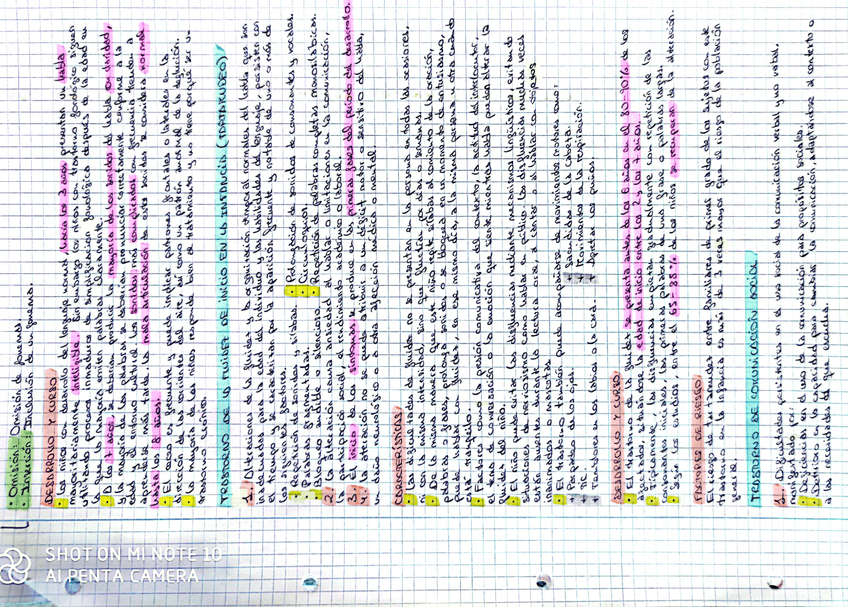 · Omisión: Omisión de fonemas.
· Inserción: Inclusión de un fonema.
DESARROLLO Y CURSO
· Los niños con desarrollo del lenguaje normal, hacia los 3 años presentan un habla
mayoritariamente inteligible. Sin embargo los niños con trastorno fonológico siguen
utilizando procesos inmaduros de simplificación fonológica después de la edad en
la que la mayoría emiten palabras claramente.
· A los 7 años, deberían producir la mayoría de los sonidos del habla con claridad,
y la mayoría de las palabras se deberían pronunciar correctamente conforme a la
edad y el entorno cultural. Los sonidos más complicados con frecuencia tienden a
aprenderse más tarde. La mala articulación de estos sonidos se considera normal
hasta los 8 años.
· El ceceo es frecuente y puede implicar patrones frontales o laterales en la
dirección de las corrientes del aire, así como un patrón anormal de la deglución.
· La mayoría de los niños responde bien al tratamiento y no tiene porqué ser un
trastorno crónico.
TRASTORNO DE LA FLUIDEZ DE INICIO EN LA INFANCIA (TARTAMUDEO)
1. Alteraciones de la fluidez y la organización temporal normales del habla que son
inadecuadas para la edad del individuo y las habilidades del lenguaje, persisten con
el tiempo y se caracterizan por la aparición frecuente y notable de uno o más de
los siguientes factores.
· Repetición de sonidos y sílabas. · Prolongación de sonidos de consonantes y vocales.
· Palabras fragmentadas. · Circunloquios.
· Bloqueo audible o silencioso. · Repetición de palabras completas monosilábicas.
2. La alteración causa ansiedad al hablar o limitaciones en la comunicación,
la participación social, el rendimiento académico o laboral.
3. El inicio de los síntomas se produce en las primeras fases del período de desarrollo.
4. La alteración no se puede atribuir a un déficit motor o sensitivo del habla,
un daño neurológico o a otra afección médica o mental.
CARACTERÍSTICAS
· Las dificultades de fluidez no se presentan en la persona en todas las ocasiones,
ni con la misma intensidad sino que fluctúan por días o semanas.
· De la misma manera que este niño repite sílabas al comienzo de la oración,
palabras o frases, prolonga sonidos o se bloquea en un momento de entusiasmo,
puede hablar con fluidez, en ese mismo día, a la misma persona u otra cuando
está tranquilo.
· Factores como la presión comunicativa del contexto, la actitud del interlocutor,
el tema de conversación o la emoción que siente mientras habla pueden alterar la
fluidez del niño.
· El niño puede evitar las disfluencias mediante mecanismos lingüísticos, evitando
situaciones de nerviosismo como hablar en público. Las disfluencias muchas veces
están ausentes durante la lectura oral, al cantar o al hablar con objetos
inanimados o mascotas.
· El trastorno también puede acompañarse de movimientos motores como:
+ Parpadeo de los ojos. + Sacudidas de la cabeza.
+ Tic. + Movimientos de la respiración.
+ Temblores en los labios o la cara. + Apretar los puños.
DESARROLLO Y CURSO
· El trastorno de la fluidez se presenta antes de los 6 años en el 80-90% de los
afectados situándose la edad de inicio entre los 2 y los 7 años.
· Típicamente, las disfluencias empiezan gradualmente con repetición de las
consonantes iniciales, las primeras palabras de una frase o palabras largas.
· Según los estudios, entre el 65-85% de los niños se recuperan de la alteración.
FACTORES DE RIESGO
El riesgo de tartamudez entre familiares de primer grado de los sujetos con este
trastorno en la infancia es más de 3 veces mayor que el riesgo de la población
general.
TRASTORNO DE COMUNICACIÓN SOCIAL
1. Dificultades persistentes en el uso social de la comunicación verbal y no verbal,
manifestado por:
· Deficiencias en el uso de la comunicación para propósitos sociales.
· Deterioro en la capacidad para cambiar la comunicación, adaptándose al contexto o
a las necesidades del que escucha.
SHOT ON MI NOTE 10
AI PENTA CAMERA